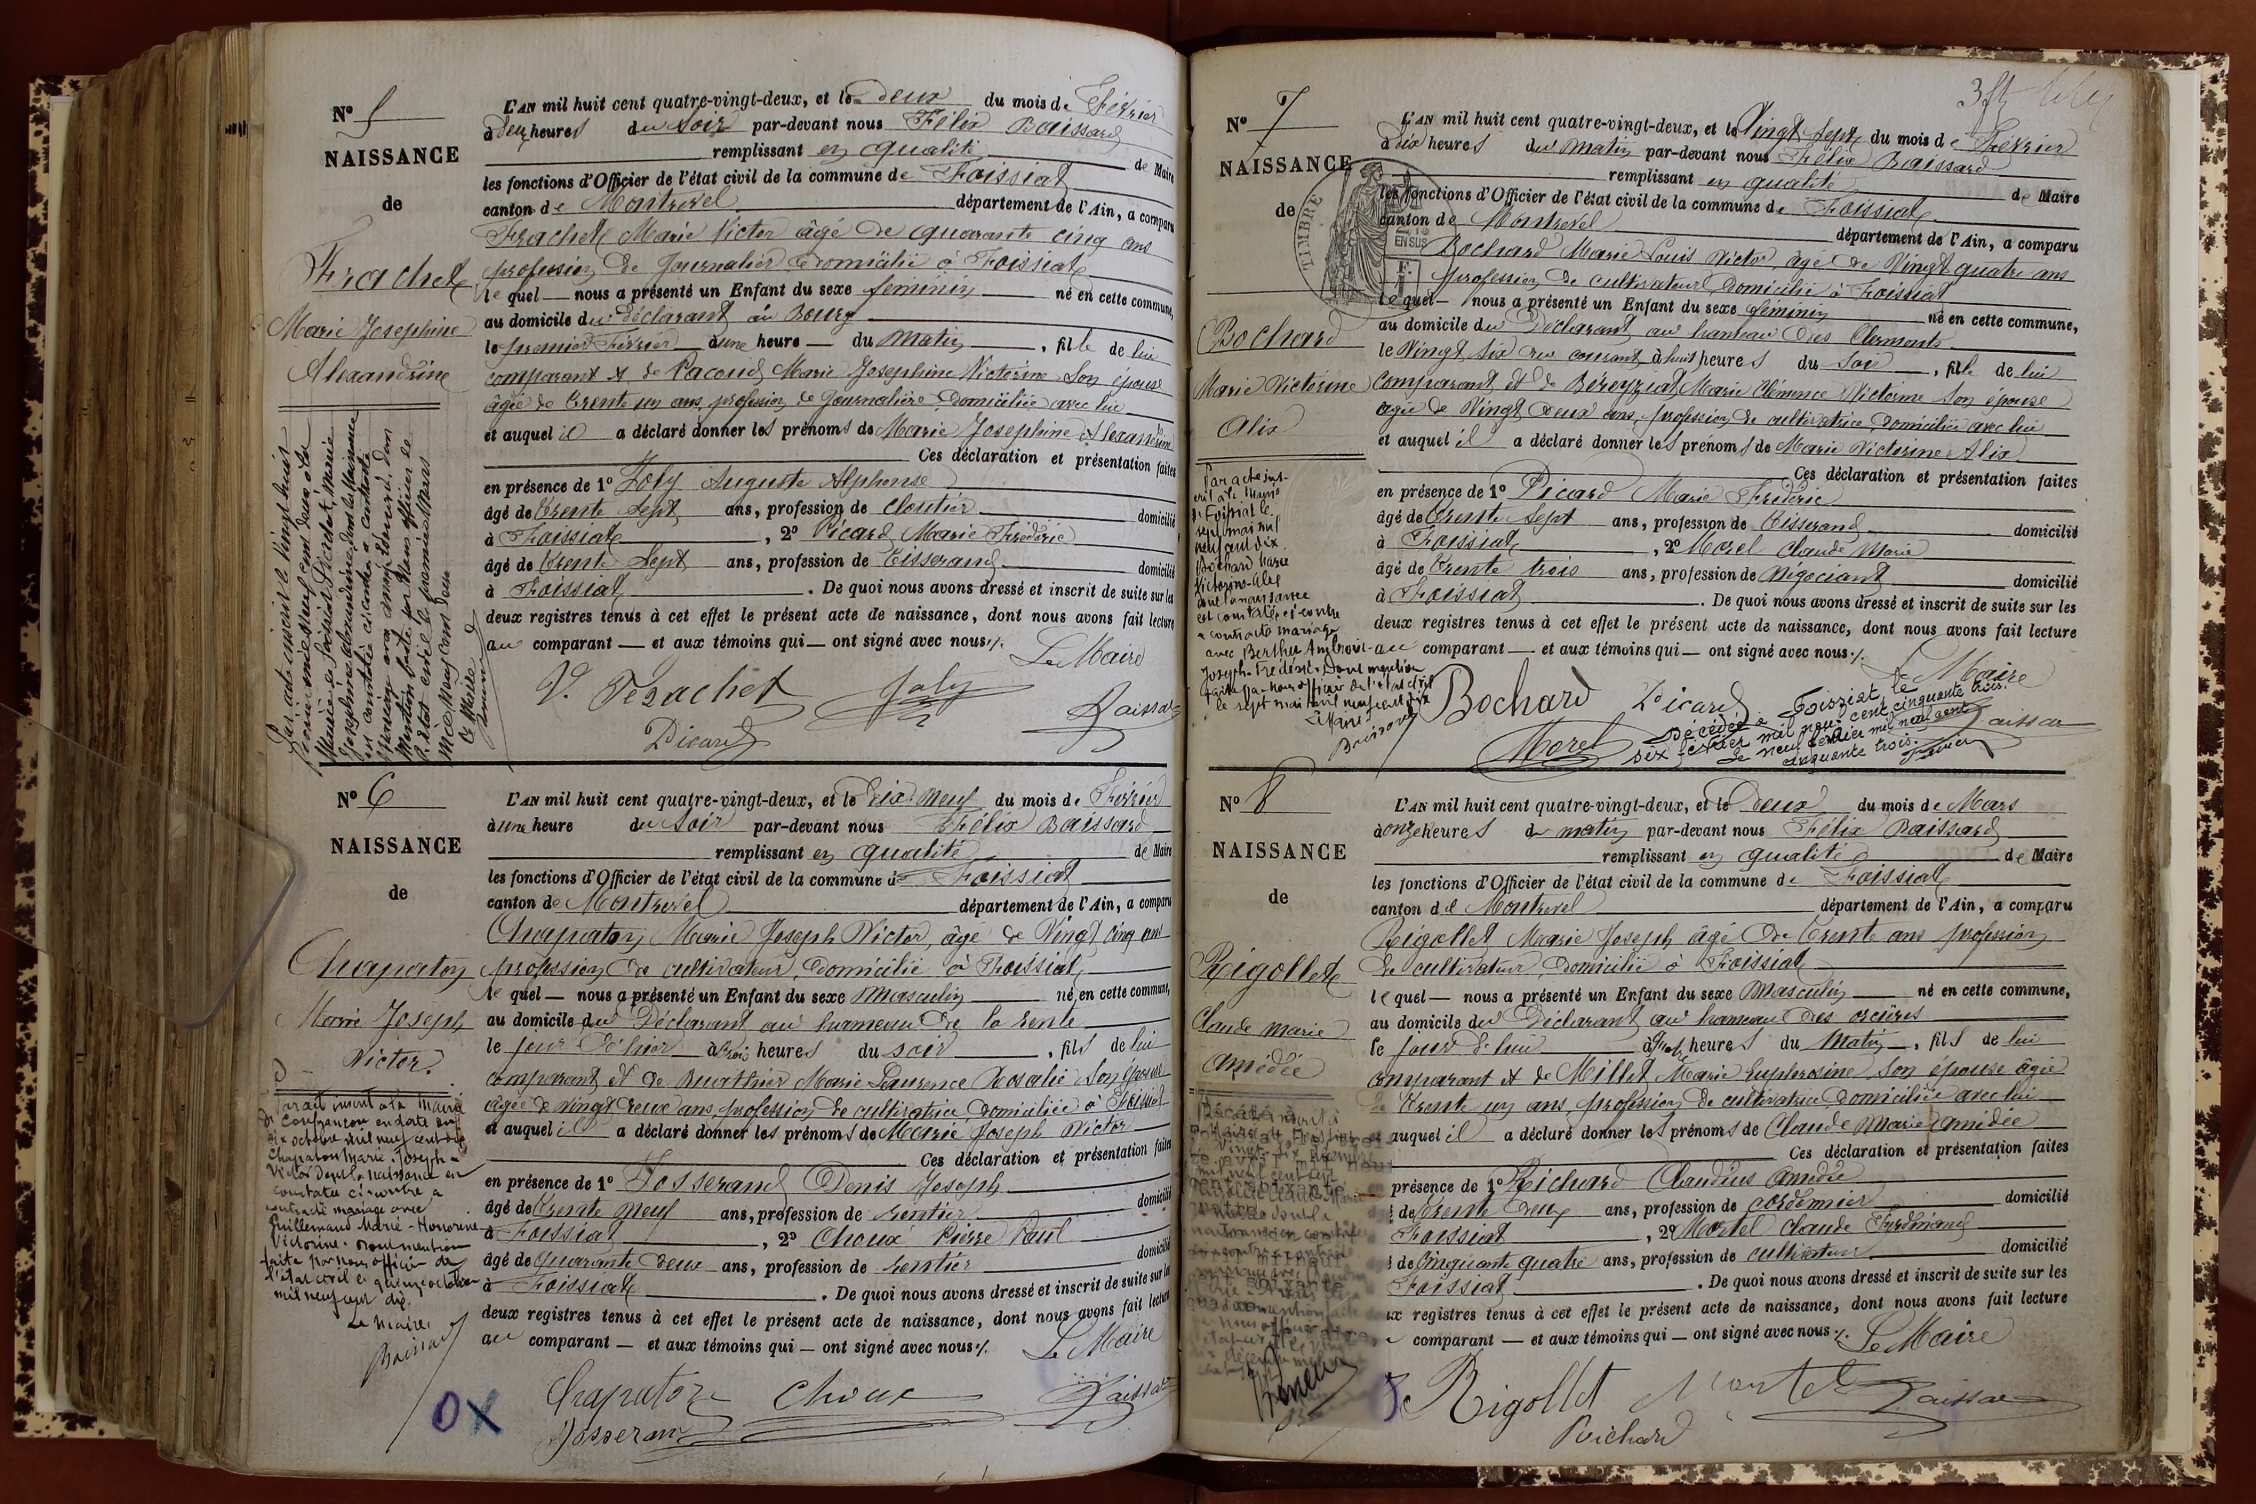 Nº 5
NAISSANCE
de
Frachet
Marie Josephine
Alexandrine
L'AN mil huit cent quatre-vingt-deux, et le deux du mois de Février
à deux heures du soir par-devant nous Félix Baissard
remplissant en qualité de Maire
les fonctions d'Officier de l'état civil de la commune de Foissiat
canton de Montrevel département de l'Ain, a comparu
Frachet Marie Victor âgé de quarante cinq ans
profession de Journalier domicilié à Foissiat
lequel — nous a présenté un Enfant du sexe féminin né en cette commune,
au domicile du déclarant au Bourg
le premier Février à une heure — du matin, fille de lui
comparant et de Pacoud Marie Josephine Victorine son épouse
âgée de trente un ans profession de Journalière domiciliée avec lui
et auquel il a déclaré donner les prénoms de Marie Josephine Alexandrine
Ces déclaration et présentation faites
en présence de 1º Joly Auguste Alphonse
âgé de trente sept ans, profession de cloutier domicilié
à Foissiat, 2º Picard Marie Frédéric
âgé de trente sept ans, profession de tisserand domicilié
à Foissiat. De quoi nous avons dressé et inscrit de suite sur les
deux registres tenus à cet effet le présent acte de naissance, dont nous avons fait lecture
au comparant — et aux témoins qui — ont signé avec nous
Le Maire
V. Frachet Joly
Picard Baissard
Nº 6
NAISSANCE
de
Chapaton
Marie Joseph
Victor
Par acte inscrit à la mairie
de Confrançon en date du
six octobre mil neuf cent dix
Chapaton Marie-Joseph-
Victor dont la naissance est
constatée ci-contre a
contracté mariage avec
Guillemaud Marie-Honorine
Victorine. Dont mention
faite par nous officier de
l'état civil le quinze octobre
mil neuf cent dix.
Le Maire,
Baissard
L'AN mil huit cent quatre-vingt-deux, et le dix neuf du mois de Février
à une heure du soir par-devant nous Félix Baissard
remplissant en qualité de Maire
les fonctions d'Officier de l'état civil de la commune de Foissiat
canton de Montrevel département de l'Ain, a comparu
Chapaton Marie Joseph Victor, âgé de vingt cinq ans
profession de cultivateur, domicilié à Foissiat
lequel — nous a présenté un Enfant du sexe masculin né en cette commune,
au domicile du Déclarant au hameau de la Sente
le jour d'hier à trois heures du soir, fils de lui
comparant et de Buathier Marie Laurence Rosalie son épouse
âgée de vingt deux ans, profession de cultivatrice domiciliée à Foissiat
et auquel il a déclaré donner les prénoms de Marie Joseph Victor
Ces déclaration et présentation faites
en présence de 1º Josserand Denis Joseph
âgé de trente neuf ans, profession de rentier domicilié
à Foissiat, 2º Choux Pierre Paul
âgé de quarante deux ans, profession de rentier domicilié
à Foissiat. De quoi nous avons dressé et inscrit de suite sur les
deux registres tenus à cet effet le présent acte de naissance, dont nous avons fait lecture
au comparant — et aux témoins qui — ont signé avec nous
Le Maire
Chapaton Choux Baissard
Josserand
OX
Nº 7
NAISSANCE
de
TIMBRE
Bochard
Marie Victorine
Alix
Par acte ins-
crit à la mairie
de Foissiat le
sept mai mil
neuf cent dix
Bochard Marie
Victorine-Alix
dont la naissance
est constatée ci-contre
a contracté mariage
avec Berthet Ambroise-
Joseph-Frédéric. Dont mention
faite par nous officier de l'état civil
le sept mai mil neuf cent dix
Le Maire
Baissard
L'AN mil huit cent quatre-vingt-deux, et le vingt sept du mois de Février
à dix heures du matin par-devant nous Félix Baissard
remplissant en qualité de Maire
les fonctions d'Officier de l'état civil de la commune de Foissiat
canton de Montrevel département de l'Ain, a comparu
Bochard Marie Louis Victor, âgé de vingt quatre ans
profession de cultivateur domicilié à Foissiat
lequel — nous a présenté un Enfant du sexe féminin né en cette commune,
au domicile du Déclarant au hameau des Clermonts
le vingt six du courant à huit heures du soir, fille de lui
comparant et de Béreyziat Marie Clémence Victorine son épouse
âgée de vingt deux ans, profession de cultivatrice, domiciliée avec lui
et auquel il a déclaré donner les prénoms de Marie Victorine Alix
Ces déclaration et présentation faites
en présence de 1º Picard Marie Frédéric
âgé de trente sept ans, profession de tisserand domicilié
à Foissiat, 2º Morel Claude Marie
âgé de trente trois ans, profession de Négociant domicilié
à Foissiat. De quoi nous avons dressé et inscrit de suite sur les
deux registres tenus à cet effet le présent acte de naissance, dont nous avons fait lecture
au comparant — et aux témoins qui — ont signé avec nous
Le Maire
Bochard Picard
Morel Baissard
Décédée à Foissiat, le
six février mil neuf cent cinquante trois.
Le neuf février mil neuf cent
cinquante trois.
Nº 8
NAISSANCE
de
Rigollet
Claude Marie
Amédée
L'AN mil huit cent quatre-vingt-deux, et le deux du mois de Mars
à onze heures du matin par-devant nous Félix Baissard
remplissant en qualité de Maire
les fonctions d'Officier de l'état civil de la commune de Foissiat
canton de Montrevel département de l'Ain, a comparu
Rigollet Marie Joseph âgé de trente ans profession
de cultivateur, domicilié à Foissiat
lequel — nous a présenté un Enfant du sexe masculin né en cette commune,
au domicile du Déclarant au hameau des
le jour de hui heures du matin, fils de lui
comparant et de Millet Marie Euphrosine son épouse âgée
de trente un ans, profession de cultivatrice, domiciliée avec lui
et auquel il a déclaré donner les prénoms de Claude Marie Amédée
Ces déclaration et présentation faites
présence de 1º Richard Claudius Amédée
de trente deux ans, profession de cordonnier domicilié
Foissiat, 2º Mortel Claude Ferdinand
de cinquante quatre ans, profession de cultivateur domicilié
Foissiat. De quoi nous avons dressé et inscrit de suite sur les
deux registres tenus à cet effet le présent acte de naissance, dont nous avons fait lecture
comparant — et aux témoins qui — ont signé avec nous
Le Maire
Rigollet Mortel Baissard
Richard